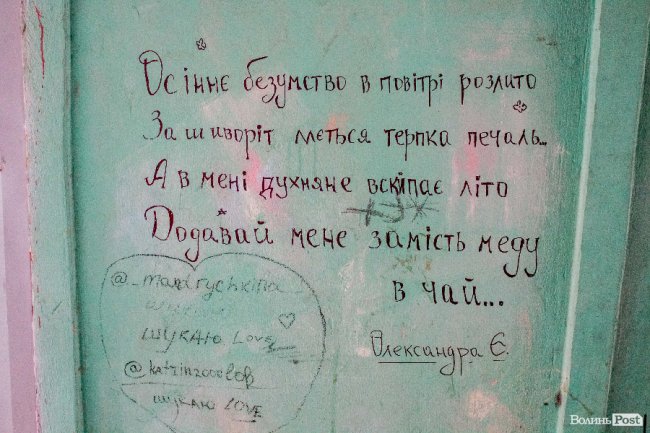 Осіннє безумство в повітрі розлито
За шиворіт ллється терпка печаль...
А в мені духняне вскіпає літо
Додавай мене замість меду
в чай...
Олександра Є.
@_mandrychkina
шукаю LOVE
@katrin2000lob
шукаю LOVE
ВолиньPost